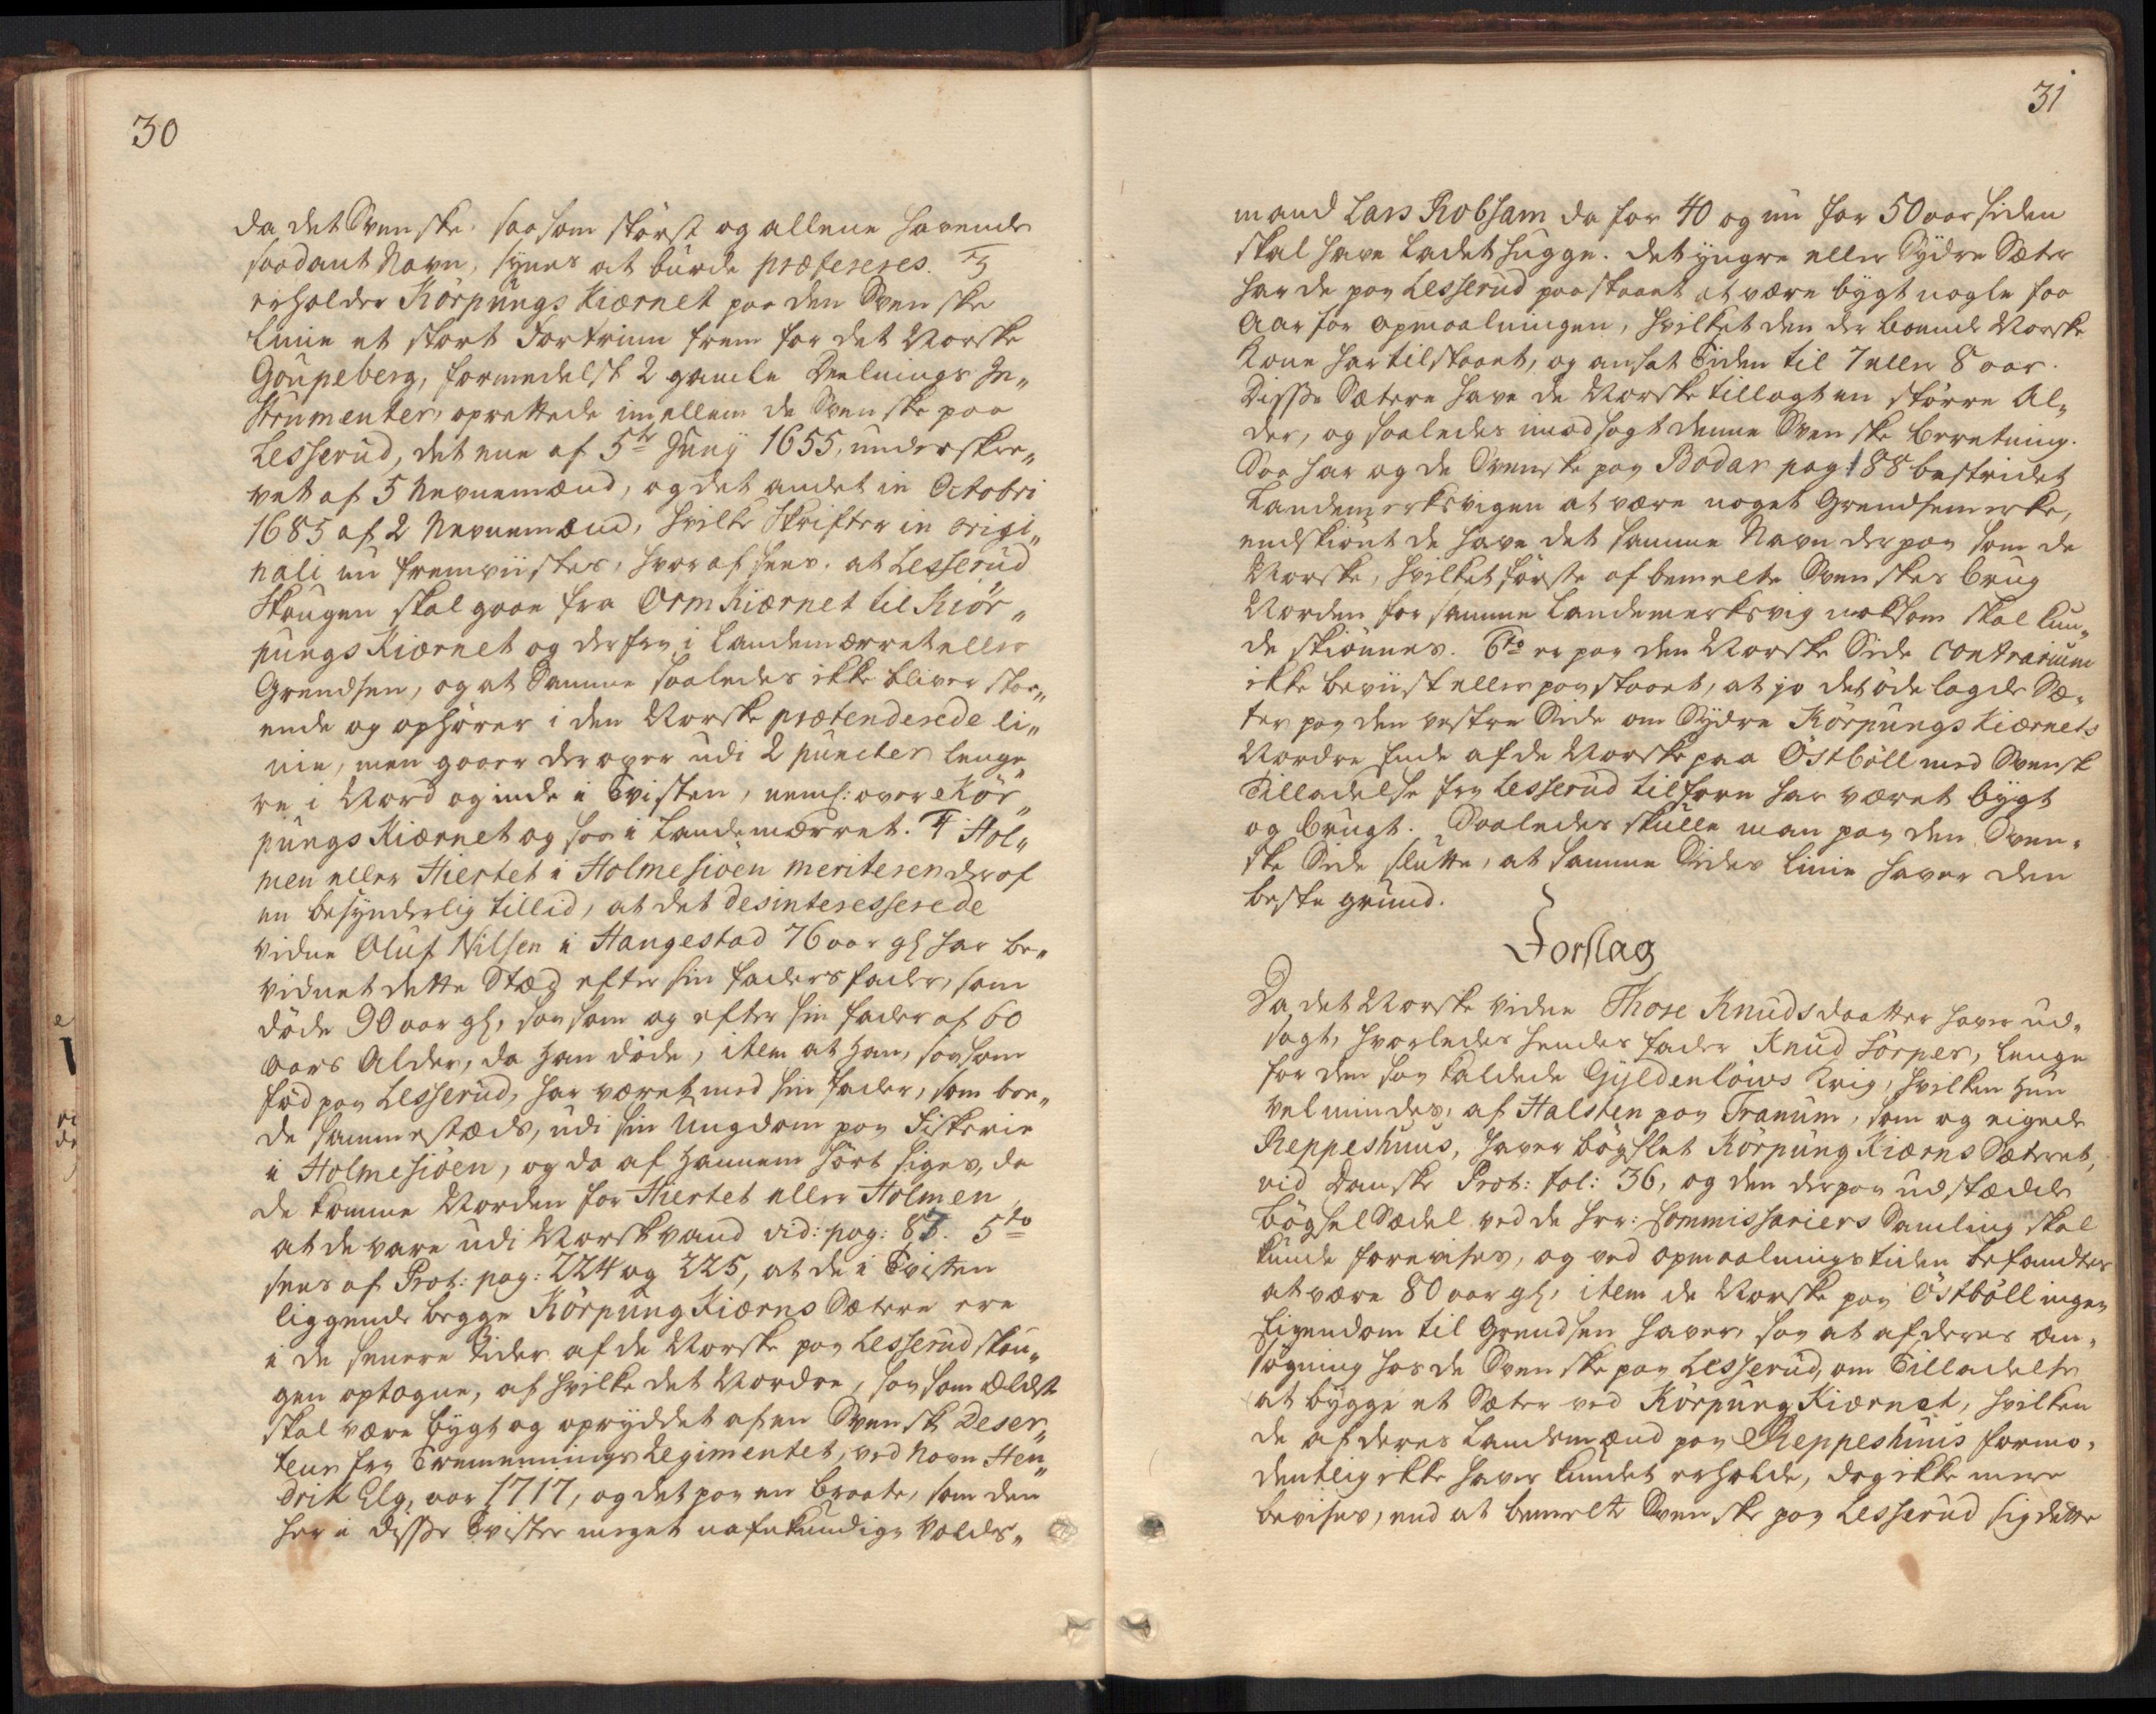 30
da det Svenske, saasom störst og allene havende
saadant Navn, synes at burde præfereres. 3
erholder Körpungs Kiærnet paa den Svenske
Linie et stort Fortrin frem for det Norske
Goupeberg, formedelst 2 gamle Deelnings In„
strumenter, oprettede imellem de Svenske paa
Lesserud, det ene af 5te Juny 1655, underskre„
vet af 5 Nevnemænd, og det andet in Octobri
1685 af 2 Nevnemænd, hvilke Skrifter in origi„
nali nu fremviistes, hvoraf sees, at Lesserud
Skougen skal gaae fra Orm Kiærnet til Kiör„
pungs Kiærnet og derfra i Landemærret eller
Grendsen, og at Samme saaledes ikke bliver staa„
ende og ophörer i den Norske prætenderede li„
nie, men gaaer derover udi 2 puncter lenge„
re i Nord og inde i Tvisten, neml: over Kör„
pungs Kiærnet og saa i Landemærret. 4 Hol„
men eller Hiertet i Holmesiöen meriteren deraf
en besynderlig tillid, at det desinteresserede
vidne Oluf Nilsen i Haugestad 76 aar gl har be„
vidnet dette Stæd efter sin faders fader, som
döde 90 aar gl, saasom og efter sin fader af 60
aars Alder, da han döde, item at han, saasom
föd paa Lesserud, har været med sin fader, som boe„
de sammestæds, udi sin Ungdom paa Fiskerie
i Holmesiöen, og da af hannem hört siges, da
de komme Norden for Hiertet eller Holmen,
at de vare udi Norsk vand vid: pag: 87. 5to
sees af Prot: pag: 224 og 225, at de i Tvisten
liggende begge Körpung Kiærns Sætere ere
i de senere tider af de Norske paa Lesserud skou„
gen optagne, af hvilke det Nordre, saasom ældst
skal være bygt og opryddet af en Svensk Deser„
teur fra Tremennings Regimentet, ved Navn Hen„
drik Elg, aar 1717, og det paa en Braate, som den
her i disse Tvister meget nafnkundige Volds„
31
mand Lars Robsam da for 40 og nu for 50 aar siden
skal have ladet hugge. det yngre eller Sydre Sæter
har de paa Lesserud paastaaet at være bygt nogle faa
Aar for opmaalningen, hvilket den der boende Norske
Kone har tilstaaet, og ansat Tiden til 7 eller 8 aar.
Disse Sætere have de Norske tillagt en större Al„
der, og saaledes imodsagt denne Svenske Beretning.
Saa har og de Svenske paa Bodar pag: 188 bestridet
Landemerksvigen at være noget Grendsemerke,
endskiönt de have det samme Navn derpaa som de
Norske, hvilket förste af bemelte Svenskes brug
Norden for samme Landemerksvig noksom skal kun„
de skiönnes. 6to er paa den Norske Side contrarium
ikke beviist eller paastaaet, at jo det ödelagde Sæ„
ter paa den vestre Side om Sydre Körpungs Kiærnets
Nordre Ende af de Norske paa Östböll med Svensk
Tilladelse fra Lesserud tilforn har været bygt
og brugt. Saaledes skulle man paa den Sven„
ske Side slutte, at samme Sides Linie haver den
beste grund.
Forslag
Da det Norske vidne Thore Knudsdaatter haver ud„
sagt, hvorledes hendes fader Knud Sörpes, lenge
for den saa kaldede Gyldenlöws Krig, hvilken hun
vel mindes, af Halsten paa Tranum, som og eigede
Reppeshuus, haver böxlet Körpung Kiærns Sæteret,
vid Danske Prot: fol: 36, og den derpaa udstædde
Böxsel Sædel ved de Hrr: Commissariers Samling skal
kunde forevises, og ved opmaalnings tiden befandtes
at være 80 aar gl, item de Norske paa Östböll ingen
Eigendom til Grendsen haver, saa at af deres An„
sögning hos de Svenske paa Lesserud, om Tilladelse
at bygge et Sæter ved Körpung Kiærnet, hvilken
de af deres Landsmænd paa Reppeshuus formo„
dentlig ikke haver kundet erholde, dog ikke mere
bevises, end at bemelte Svenske paa Lesserud sig dette